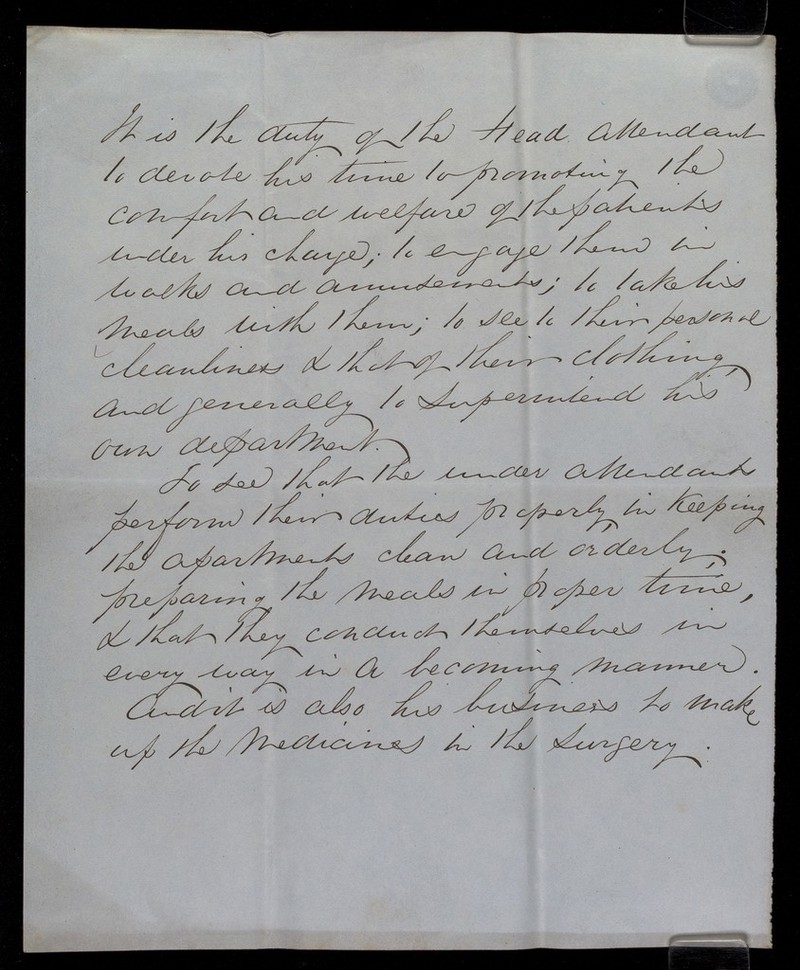 It is the duty of the Head Attendant
to devote his time to promoting the
comfort and welfare of the patients
under his charge; to engage them in
walks and amusements; to take his
meals with them; to see to their personal
cleanliness & that of their clothing,
and generally to Superintend his
own department.
To see that the under attendants
perform their duties properly in keeping
the apartments clean and orderly;
preparing the meals in proper time,
& that they conduct themselves in
every way in a becoming manner.
And it is also his business to make
up the Medicines in the Surgery.